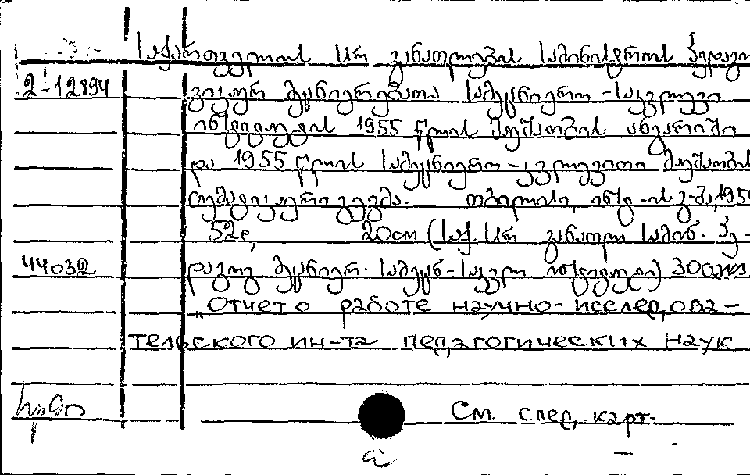 საქართველოს სსრ განათლების სამინისტროს პედაგო
2-12894 გიკურ მეცნიერებათა სამეცნიერო-საკვლევი
ინსტიტუტის 1955 წლის მუშაობის ანგარიში
და 1955 წლის სამეცნიერო-კვლევითი მუშაობის
თემატიკური გეგმა. თბილისი, 195
52с, 20см (საქ. სსრ განათლ. სამინ. პე-
44032 დაგოგ. მეცნიერ. სამეცნ-საკვლ. ინსტიტუტი) 300
„Отчет о работе научно-исслед,ова-
тельского ин-та педагогических наук
См. след, карт.